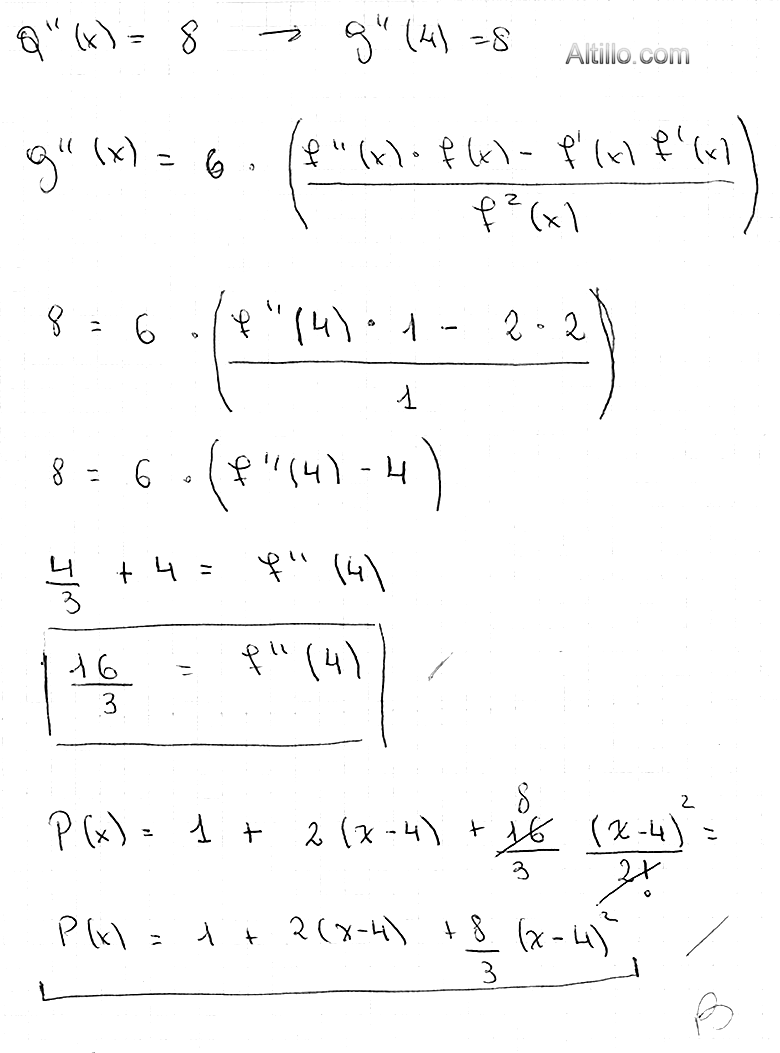 Q''(x) = 8 → g''(4) = 8
Altillo.com
g''(x) = 6 · (f''(x) · f(x) - f'(x) f'(x) / f²(x))
8 = 6 · (f''(4) · 1 - 2 · 2 / 1)
8 = 6 · (f''(4) - 4)
4/3 + 4 = f''(4)
16/3 = f''(4)
8
P(x) = 1 + 2(x-4) + 16/3 (x-4)²/2! =
P(x) = 1 + 2(x-4) + 8/3 (x-4)²